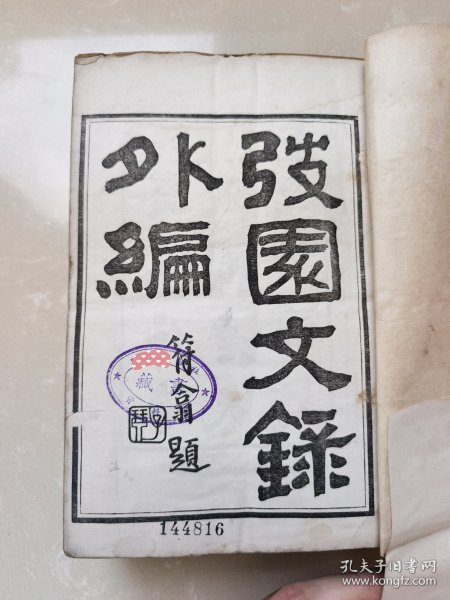 弢園文錄
外編
符翕題
藏書
144816
孔夫子旧书网
www.kongfz.com